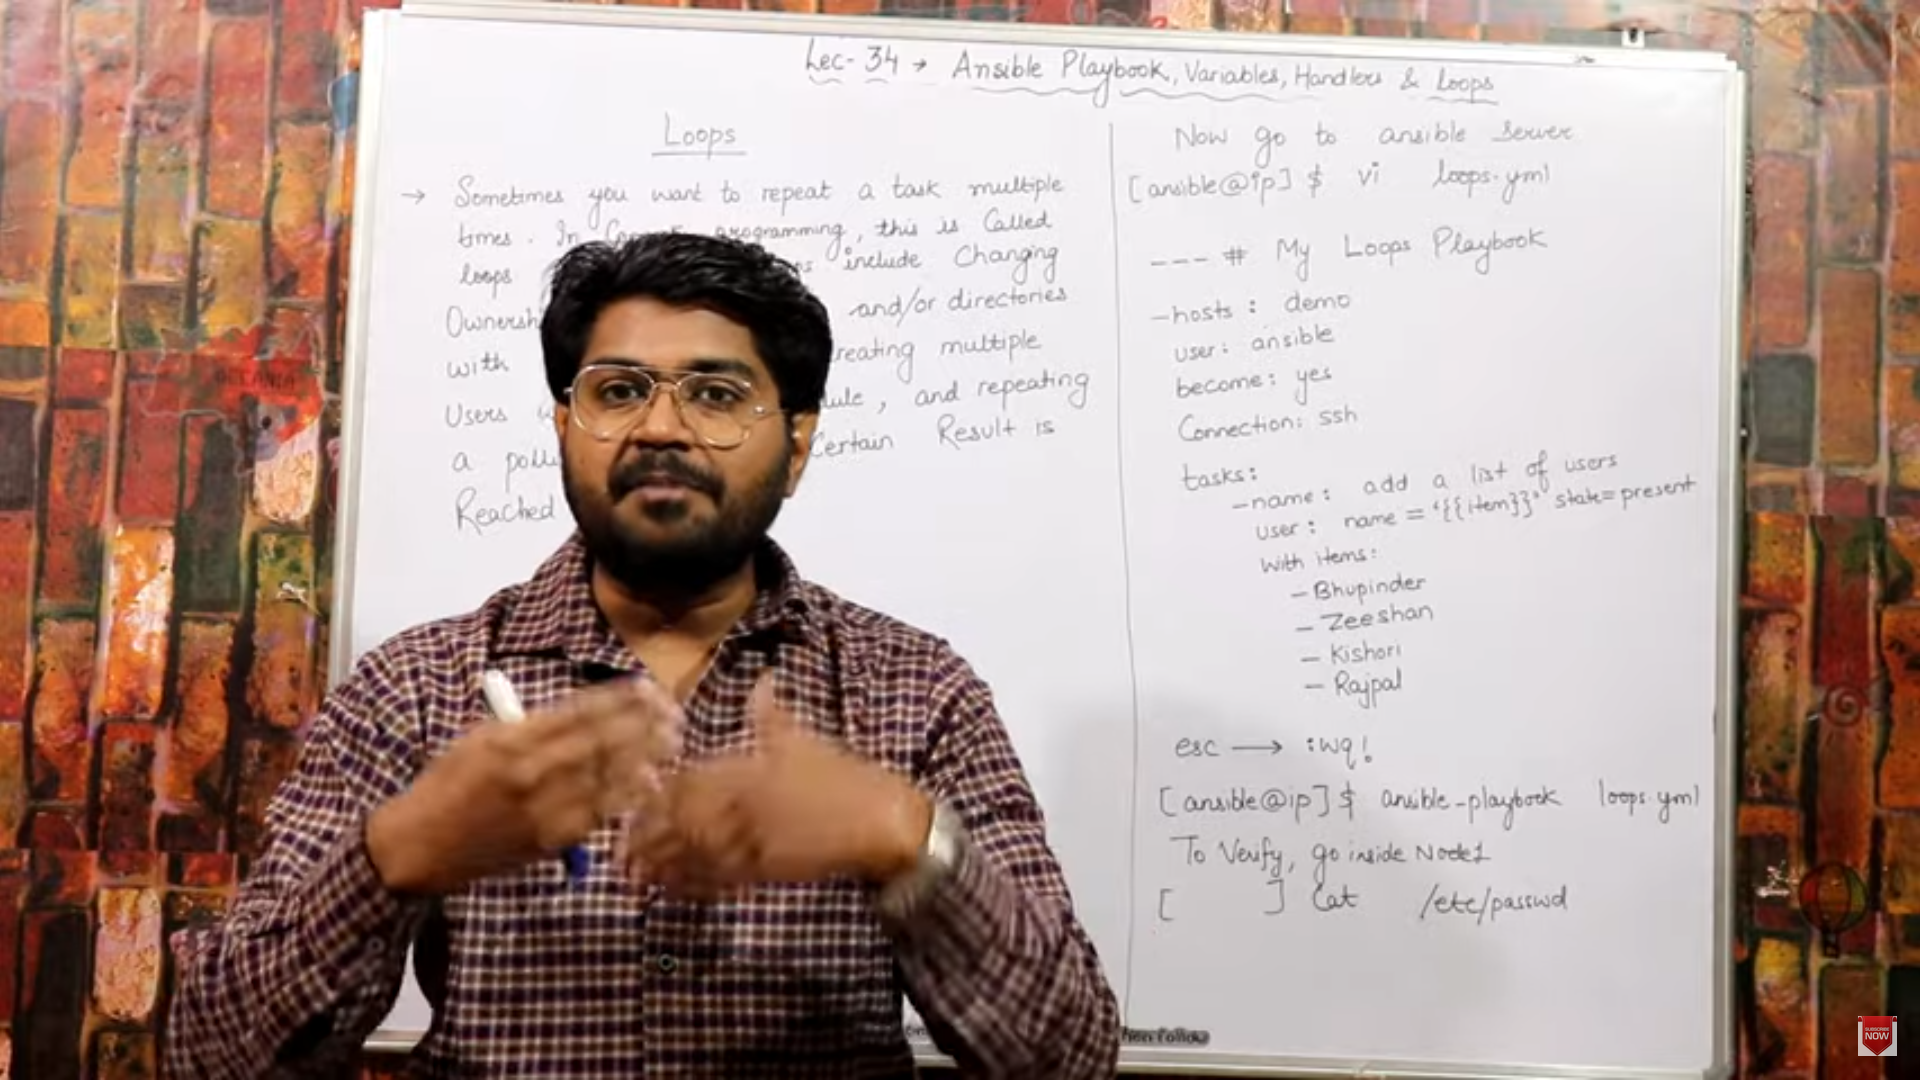 Lec-34 → Ansible Playbook, Variables, Handlers & Loops
Loops
→ Sometimes you want to repeat a task multiple
times. In programming, this is Called
loops include Changing
Ownersh and/or directories
with reating multiple
Users ule, and repeating
a poll Certain Result is
Reached
Now go to ansible server
[ansible@ip] $ vi loops.yml
--- # My Loops Playbook
-hosts: demo
user: ansible
become: yes
Connection: ssh
tasks:
-name: add a list of users
user: name = '{{item}}' state=present
with items:
- Bhupinder
- Zeeshan
- Kishori
- Rajpal
esc → :wq!
[ansible@ip] $ ansible-playbook loops.yml
To Verify, go inside Node1
[ ] Cat /etc/passwd
hen Follow
SUBSCRIBE
NOW